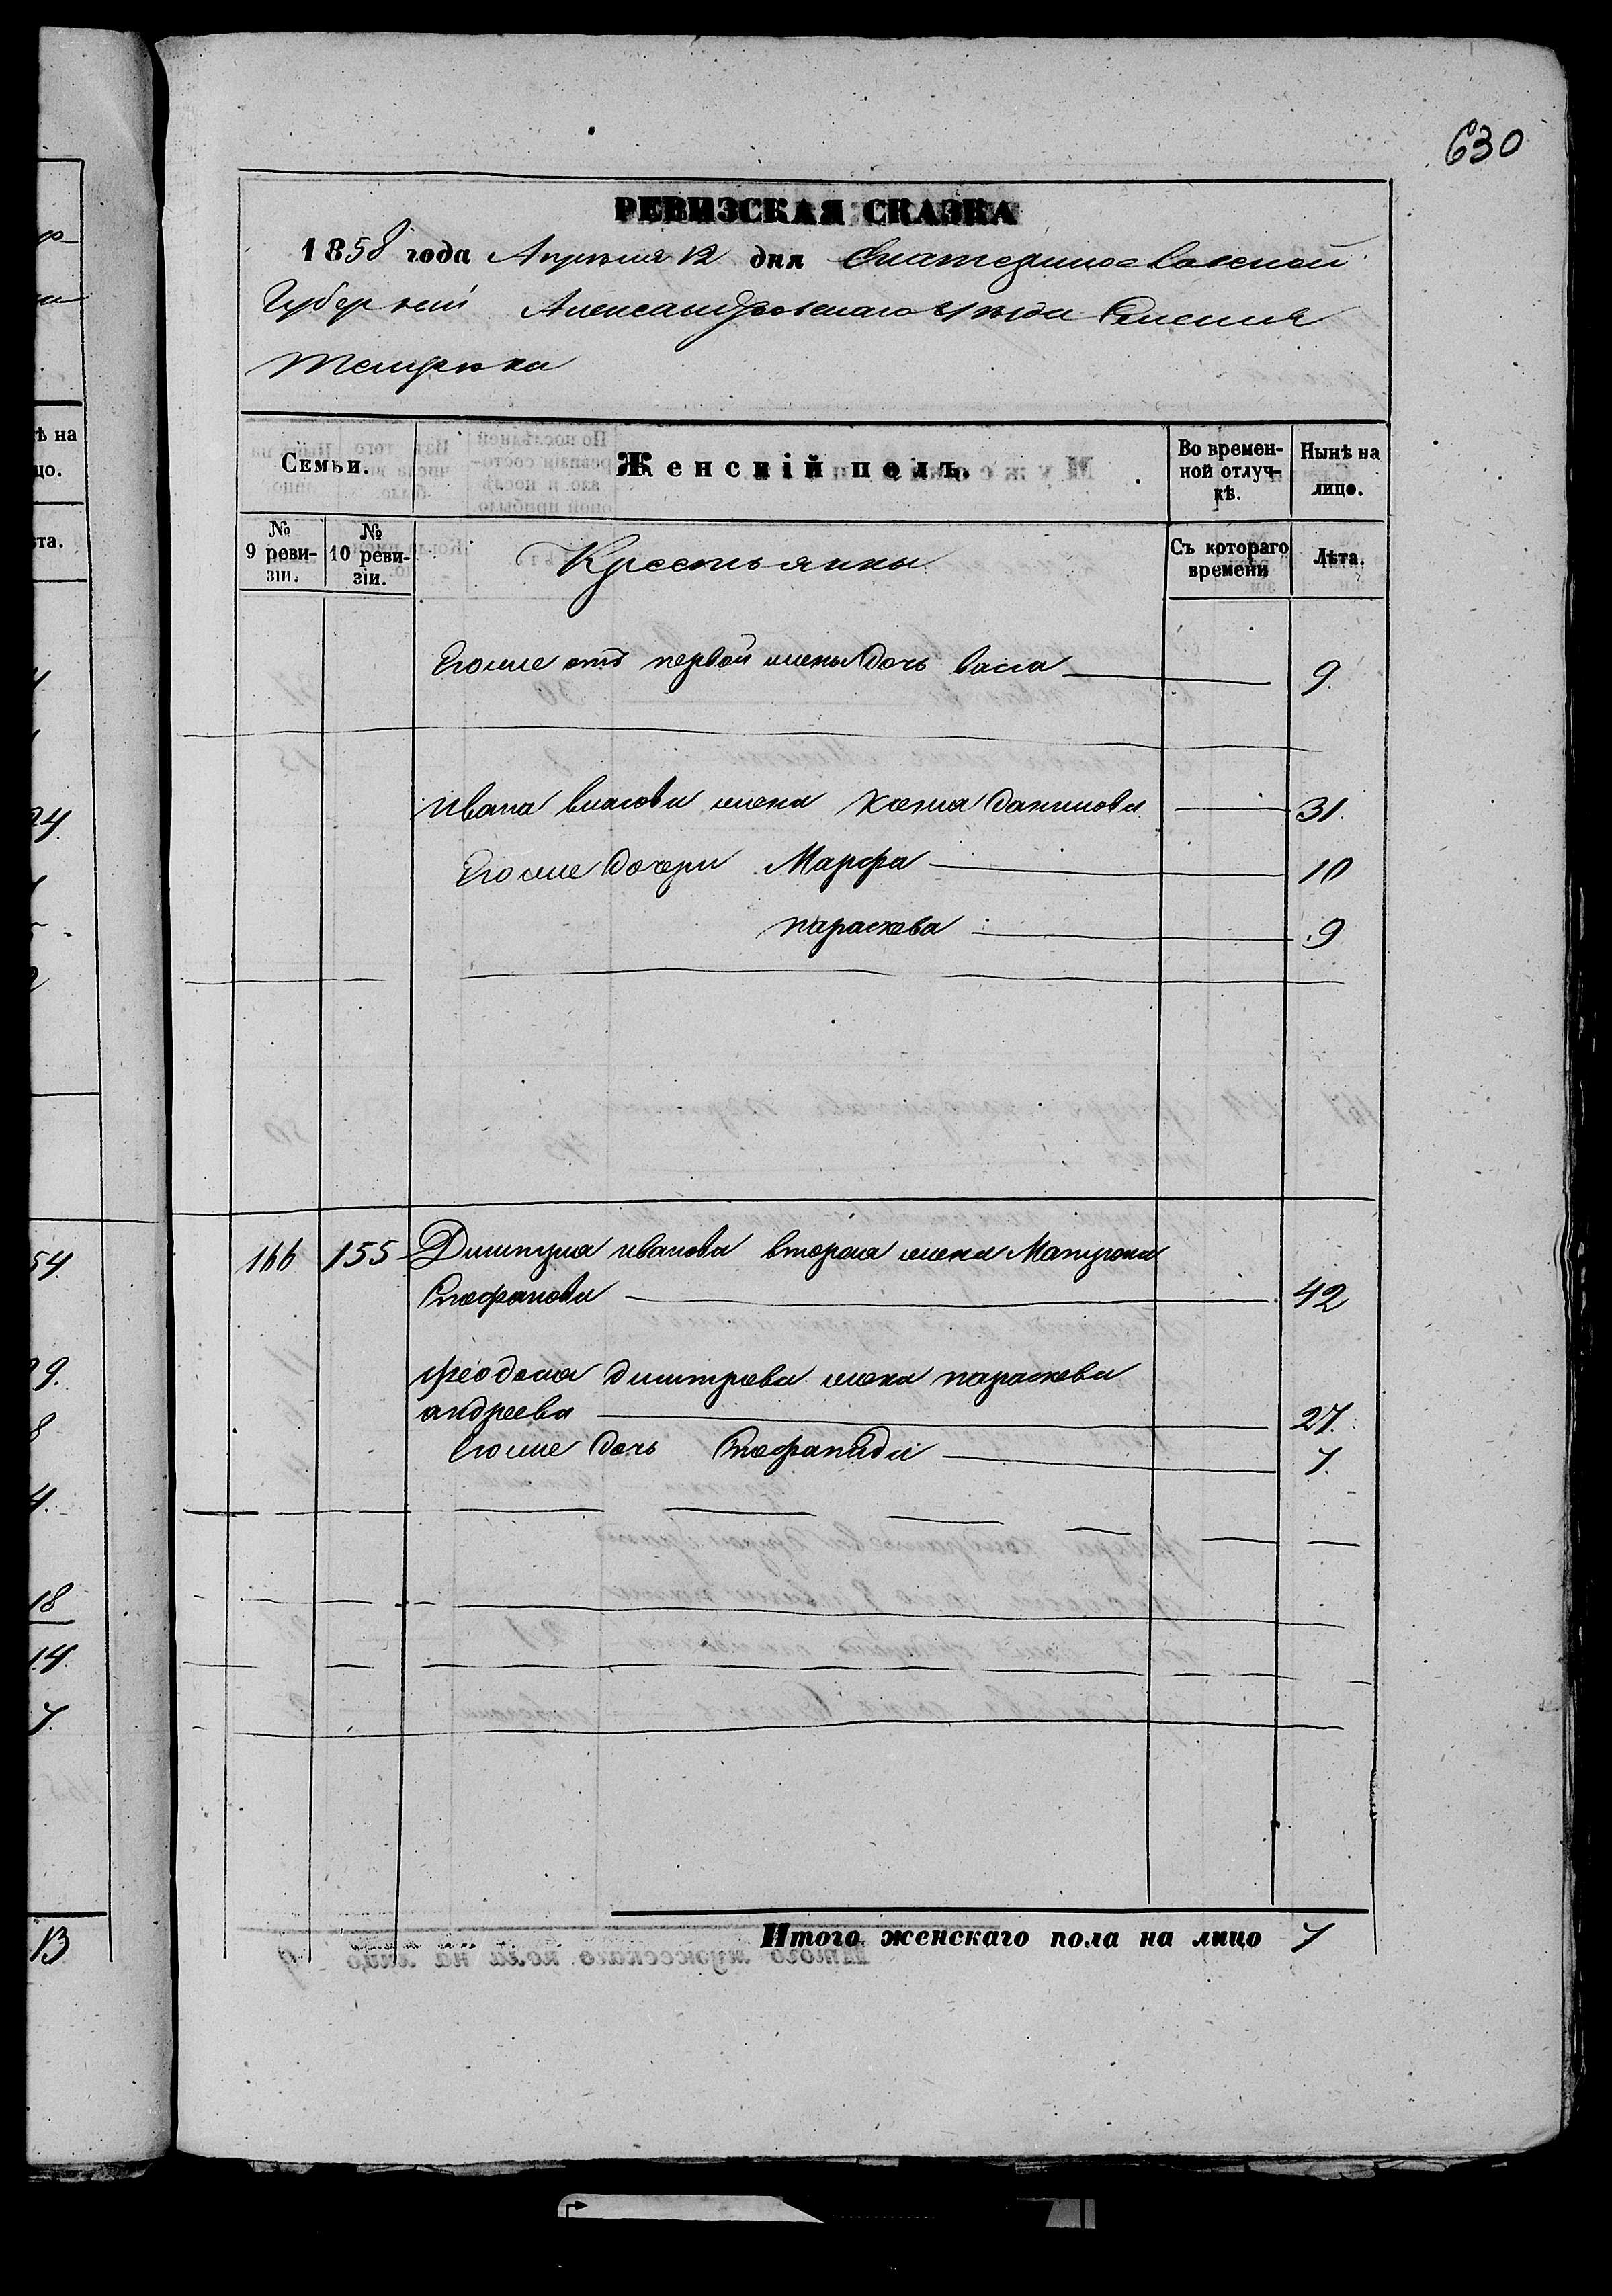 630
РЕВИЗСКАЯ СКАЗКА
1858 года Апреля 12 дня Екатеринославской
Губернии Александровскаго уѣзда Селения
Темрюка
Семьи.
Женскій полъ.
Во времен-
ной отлуч-
кѣ.
Нынѣ на
лицо.
№
9 реви-
зіи.
№
10 реви-
зіи.
Крестьянки
Съ котораго
времени
Лѣта.
Егоже отъ первой жены дочь Васса 9.
Ивана Власова жена Ксения Данилова 31.
Егоже дочери Марфа 10
параскева 9
166 155 Димитрия иванова вторая жена Матрона
Стефанова 42
Феодома димитрева жена параскева
андреева 27.
Егоже дочь Стефанида 7.
Итого женскаго пола на лицо 7
ѣ на
цо.
ѣта.
24.
54.
29.
8
4.
18
14.
7.
13